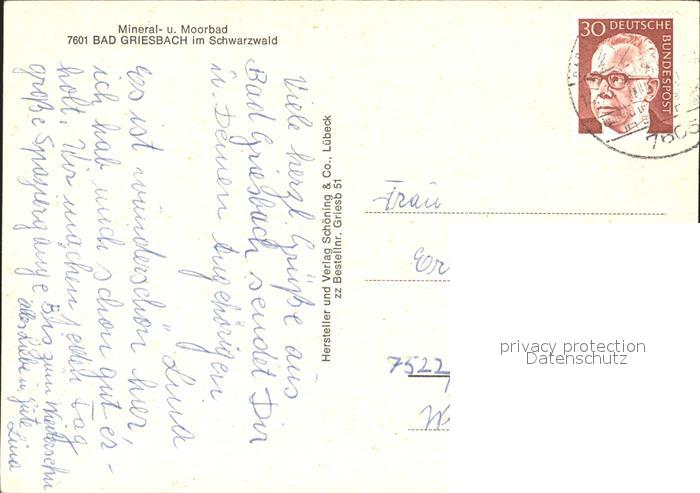 Mineral- u. Moorbad
7601 BAD GRIESBACH im Schwarzwald
Viele herzl. Grüße aus
Bad Griesbach sendet Dir
u. Deinen Angehörigen
Lina
Es ist wunderschön hier,
ich hab mich schon gut er-
holt. Wir machen jeden Tag
große Spaziergänge Bis zum Wiedersehn
alles Liebe u. Gute Lina
Hersteller und Verlag Schöning & Co., Lübeck
zz Bestellnr. Griesb 51
30 DEUTSCHE
BUNDESPOST
7605
Frau
Er
7522
W
privacy protection
Datenschutz